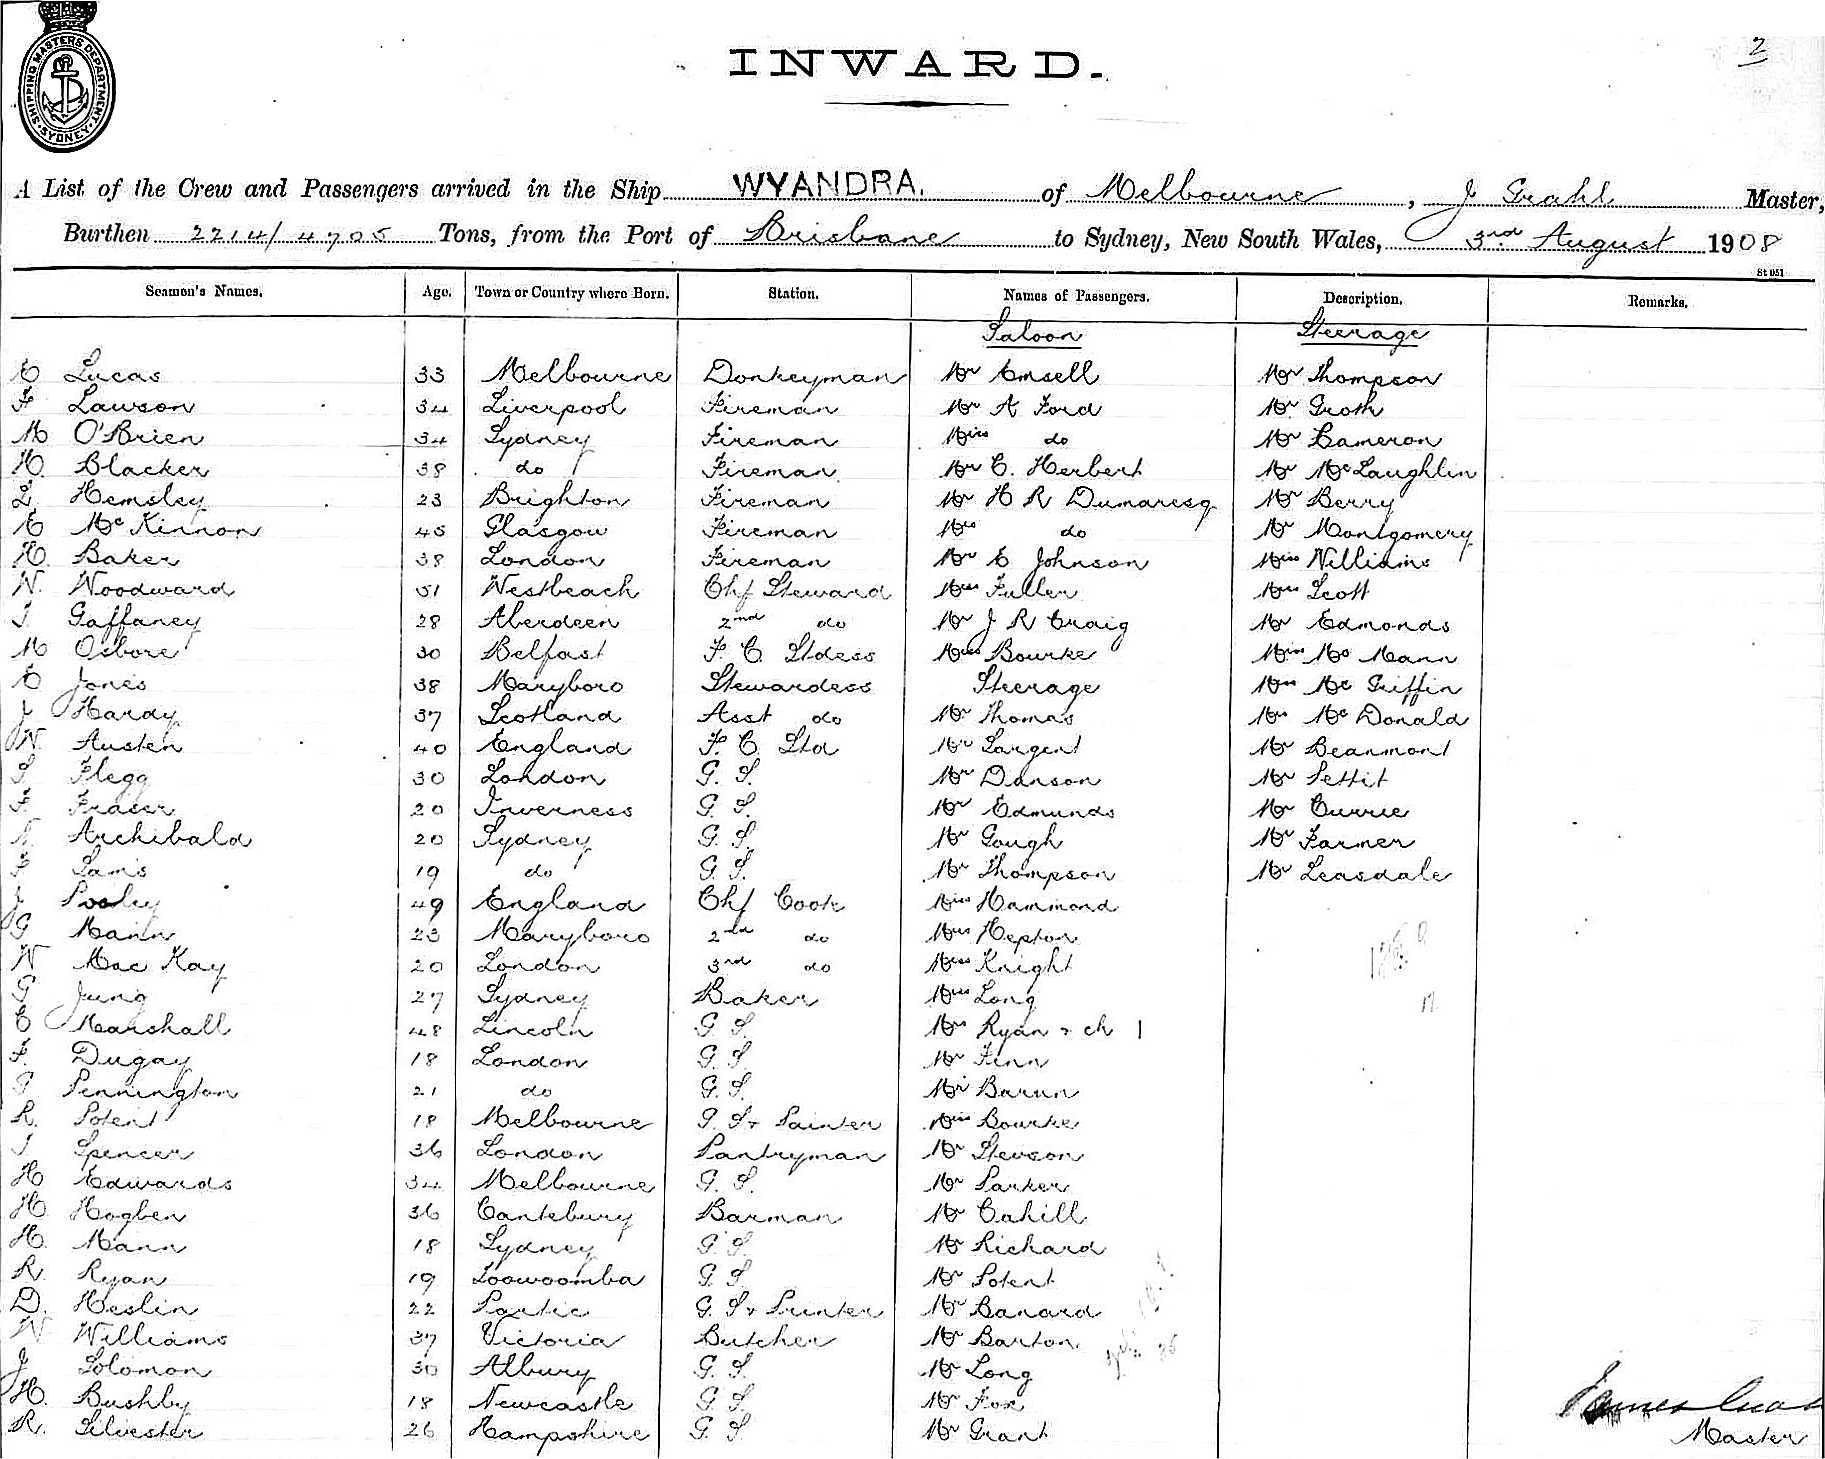 SHIPPING MASTERS DEPARTMENT
SYDNEY
2
INWARD.
A List of the Crew and Passengers arrived in the Ship WYANDRA. of Melbourne, J Grahl Master,
Burthen 2214/4705 Tons, from the Port of Brisbane to Sydney, New South Wales, 3rd August 1908
St 051
Seamen's Names. Age. Town or Country where Born. Station. Names of Passengers. Description. Remarks.
Saloon Steerage
C Lucas 33 Melbourne Donkeyman Mr Emsell Mr Thompson
F Lawson 34 Liverpool Fireman Mr A Ford Mr Groth
M O'Brien 34 Sydney Fireman Miss do Mr Cameron
H. Blacker 38 do Fireman Mr C. Herbert Mr McLaughlin
L Hemsley 23 Brighton Fireman Mr H R Dumaresq Mr Berry
C McKinnon 45 Glasgow Fireman Mrs do Mr Montgomery
H. Baker 38 London Fireman Mr E Johnson Miss Williams
W. Woodward 51 Westbeach Chf Steward Mrs Fuller Mrs Scott
T Gaffaney 28 Aberdeen 2nd do Mr J R Craig Mr Edmonds
M Osbore 30 Belfast F. C. Stdess Miss Bourke Miss Mc Mann
C Jones 38 Maryboro Stewardess Steerage Mrs Mc Griffin
J Hardy 37 Scotland Asst do Mr Thomas Mrs McDonald
W. Austen 40 England F. C. Std Mr Largent Mr Beanmont
S Flegg 30 London G. S. Mr Danson Mr Pettit
F. Fraser 20 Inverness G. S. Mr Edmunds Mr Currie
Archibald 20 Sydney G. S. Mr Gough Mr Farmer
F Sams 19 do G. S. Mr Thompson Mr Leasdale
J Pooley 49 England Chf Cook Miss Hammond
G Mann 23 Maryboro 2nd do Mrs Hepton
W Mac Kay 20 London 3rd do Miss Knight
G Jung 27 Sydney Baker Mrs Long
C Marshall 48 Lincoln G. S. Mrs Ryan + ch 1
F. Dugay 18 London G. S. Mr Finn
G Pennington 21 do G. S. Mr Barun
R. Potent 18 Melbourne G. S + Painter Miss Bourke
T Spencer 36 London Pantryman Mr Stewson
H Edwards 34 Melbourne G. S. Mr Parker
H. Hogben 36 Cantebury Barman Mr Cahill
H. Mann 18 Sydney G. S. Mr Richard
R. Ryan 19 Toowoomba G. S Mr Potent
D. Heslin 22 Partic G. S + Printer Mr Banard
W Williams 37 Victoria Butcher Mr Barton
J Solomon 30 Albury G. S. Mr Long
H. Bushby 18 Newcastle G. S Mr Fox
R. Silvester 26 Hampshire G. S Mr Grant
Master